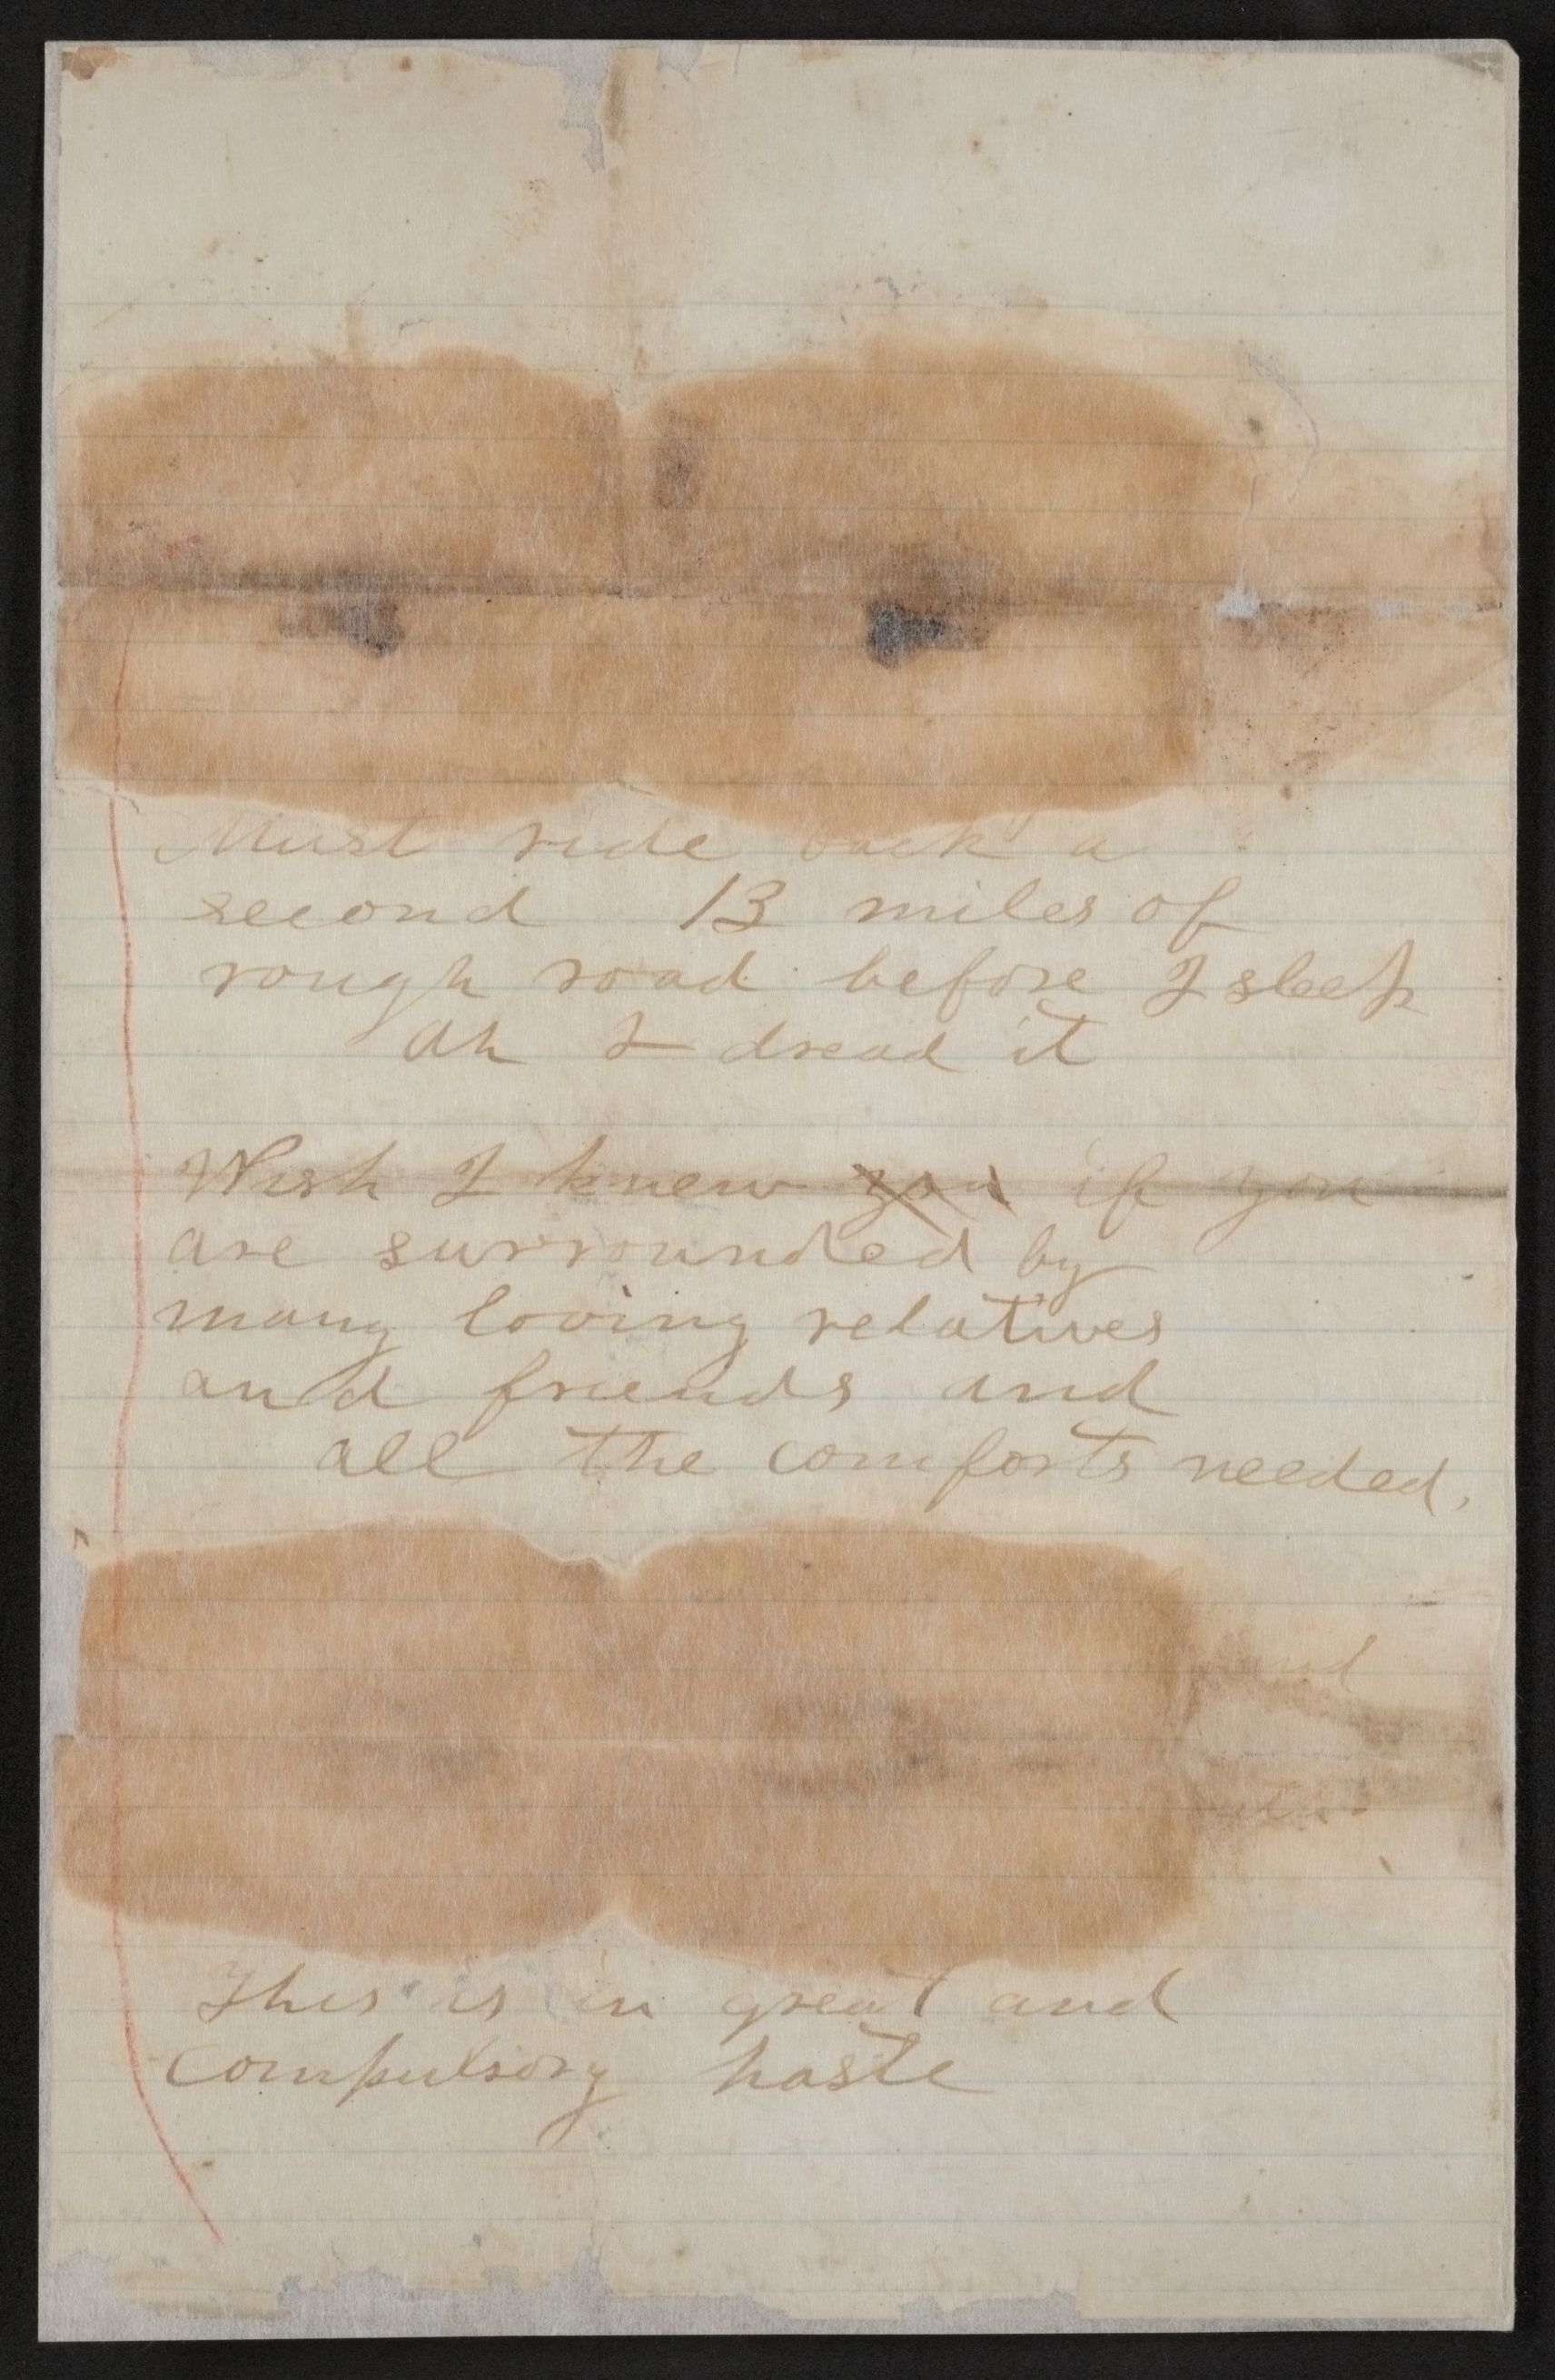 Must ride back a
second 13 miles of
rough road before I sleep
Ah I dread it
Wish I knew you if you
are surrounded by
many loving relatives
and friends and
all the comforts needed.
This is in great and
compulsory haste